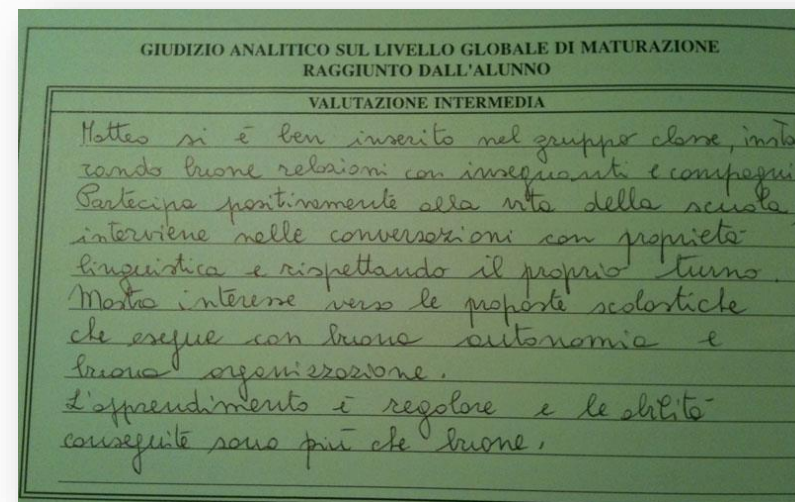 GIUDIZIO ANALITICO SUL LIVELLO GLOBALE DI MATURAZIONE
RAGGIUNTO DALL'ALUNNO
VALUTAZIONE INTERMEDIA
Matteo si è ben inserito nel gruppo classe, insta
rando buone relazioni con insegnanti e compagni
Partecipa positivamente alla vita della scuola
interviene nelle conversazioni con proprietà
linguistica e rispettando il proprio turno.
Mostra interesse verso le proposte scolastiche
che esegue con buona autonomia e
buona organizzazione.
L'apprendimento è regolare e le abilità
conseguite sono più che buone.